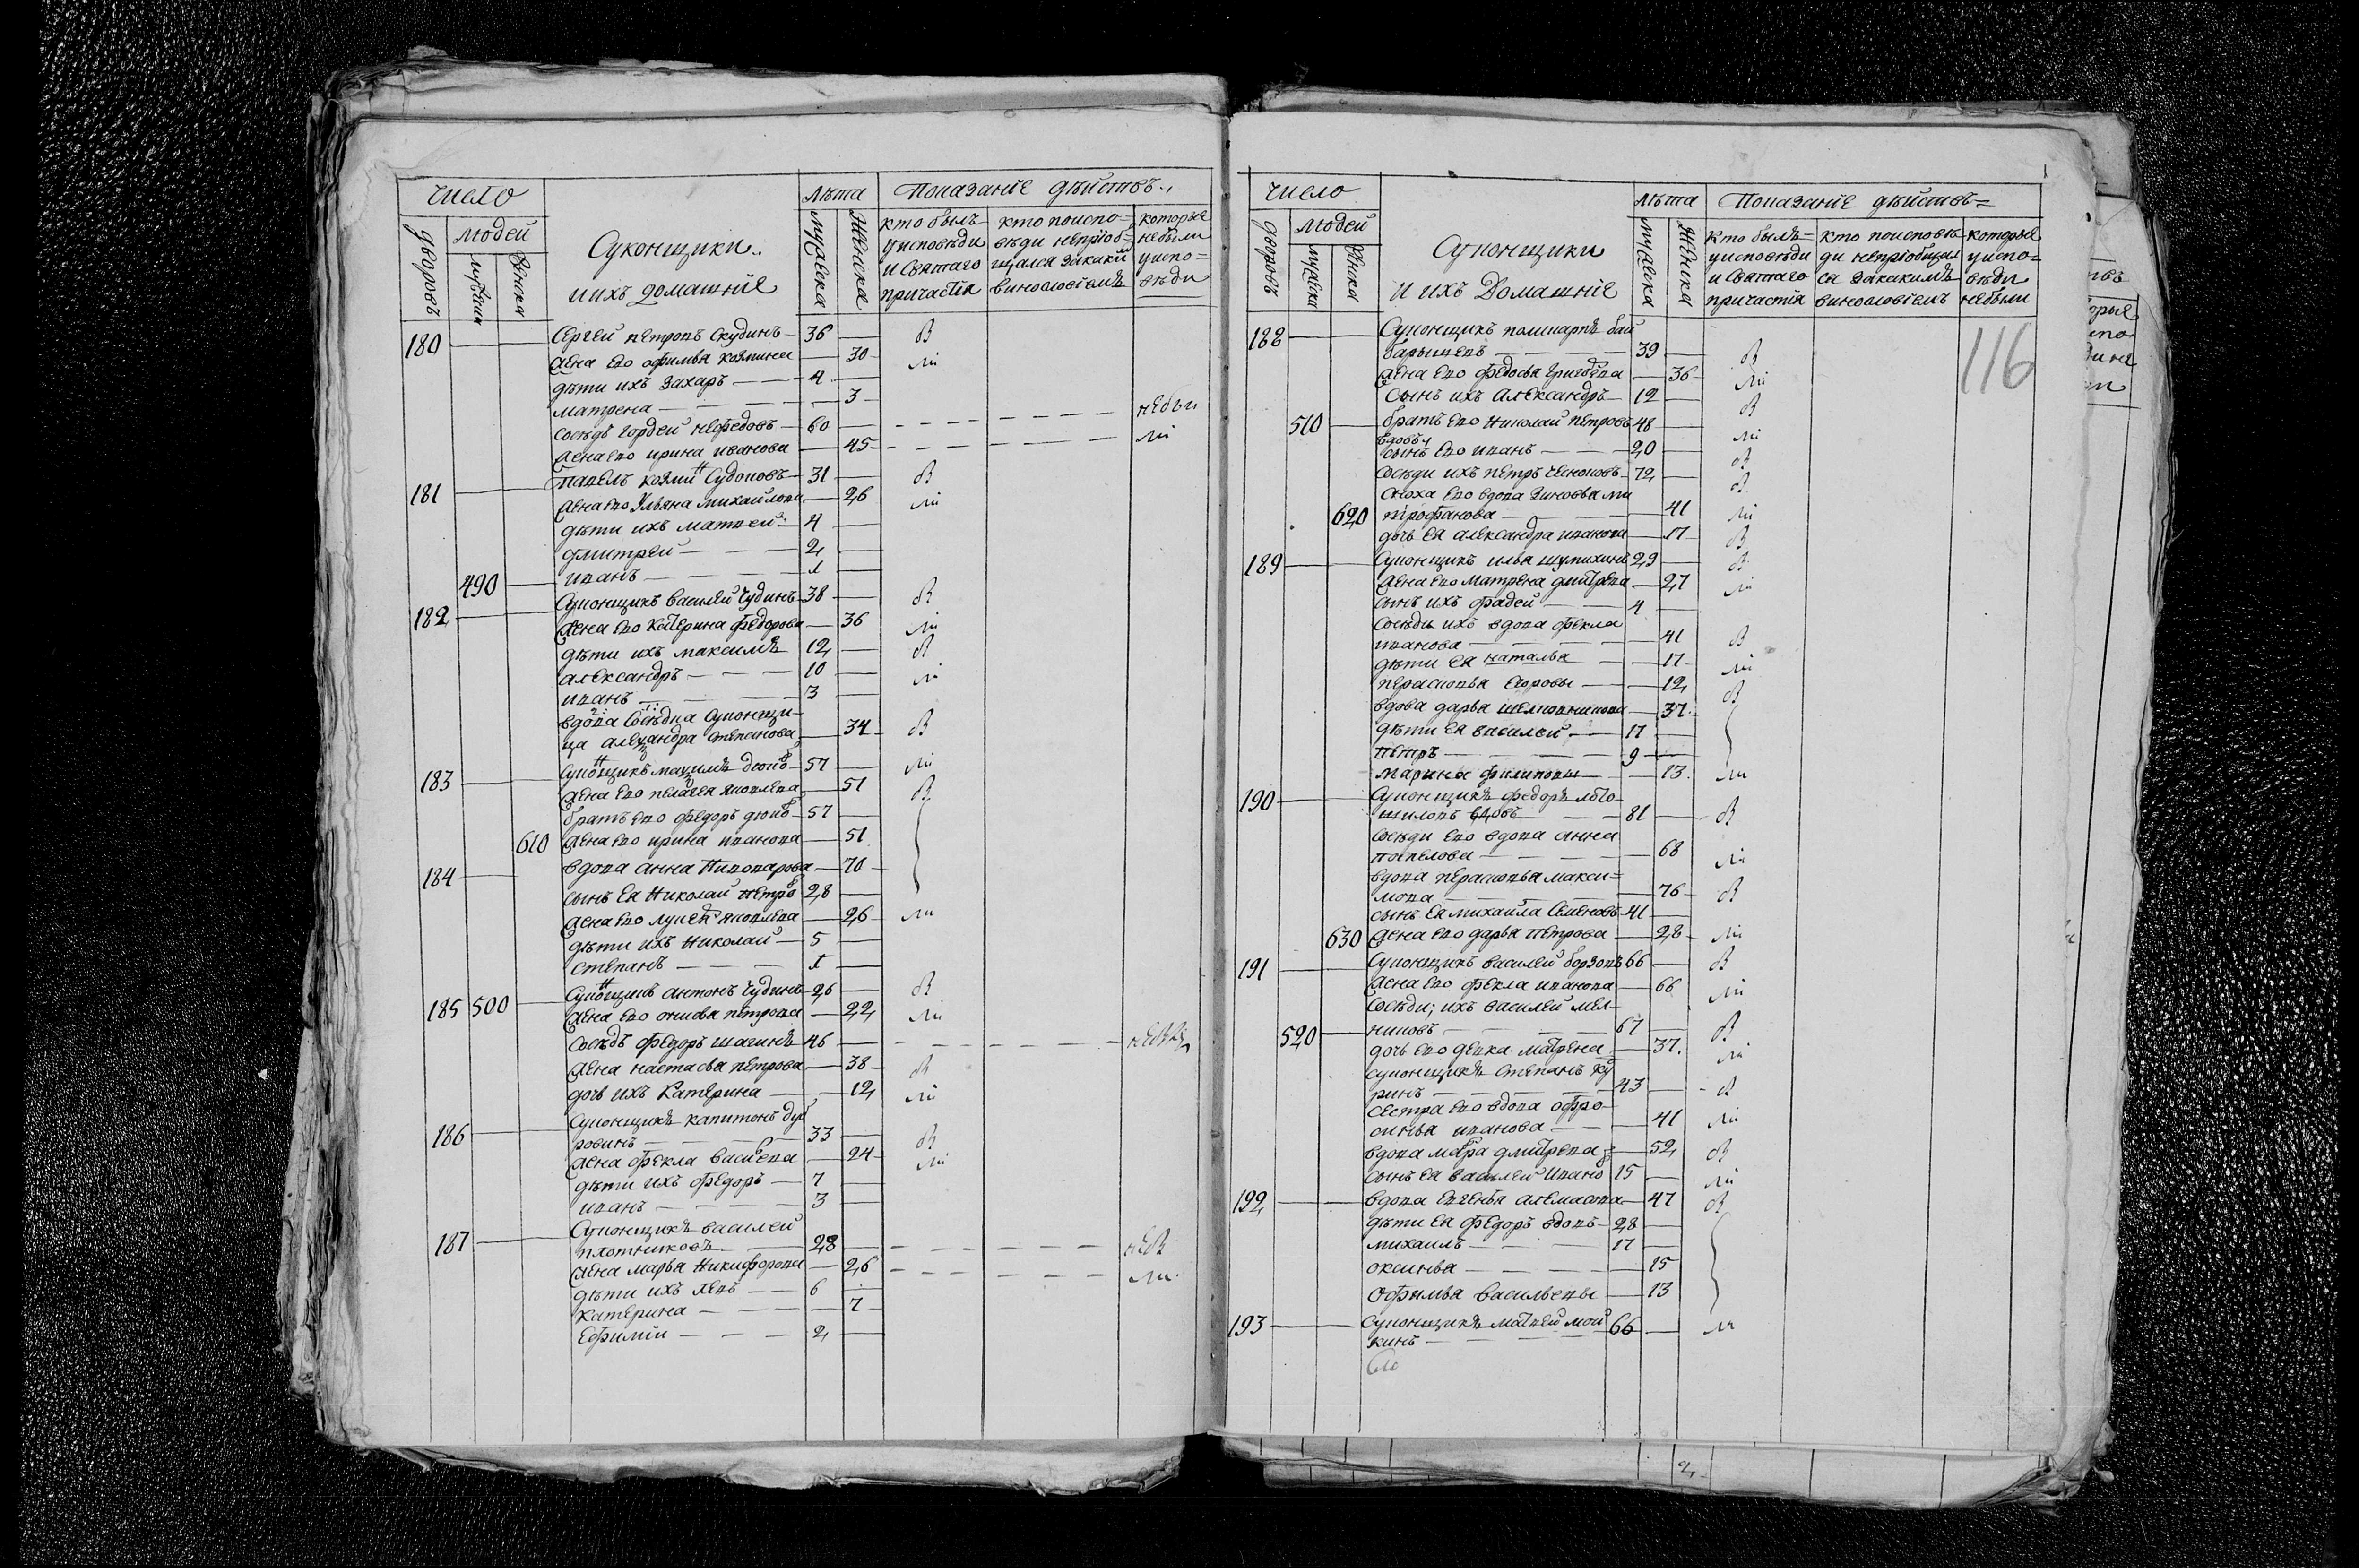 число
лѣта
Показанïе дѣйствъ
дворовъ
людей
мужеска
женска
Суконщики
и ихъ домашнïе
мужеска
женска
кто былъ
у исповѣди
и Святаго
причастïя
кто по испо-
вѣди непрïоб-
щался за каким
винословïемъ
которые
небыли
у испо-
вѣди
180 Сергей петровъ скудинъ 36 в
жена ево офимья козмина 30 ли
дѣти ихъ захаръ 4
матрена 3
сосѣдъ гордей нефедовъ 60 небы
жена ево ирина иванова 45 ли
181 павелъ козми 31 в
жена ево Ульяна михайлова 26 ли
дѣти ихъ матвей 4
дмитрей 2
490 иванъ 1
182 Суконщикъ василей чудинъ 38 в
жена ево катерина федорова 36 ли
дѣти ихъ максимъ 12 в
александръ 10 ли
иванъ 3
вдова сосѣдка Суконщи-
ца александра степанова 34 в
183 Суконщикъ максимъ 57 ли
жена ево пелагея яковлева 51 в
братъ ево федоръ 57
610 жена ево ирина иванова 51
184 вдова анна 70
сынъ ея николай петро 28
жена ево лукея яковлева 26 ли
дѣти ихъ николай 5
степанъ 1
185 500 Суконщикъ антонъ чудинъ 26 в
жена ево петрова 22 ли
сосѣдъ федоръ шагинъ 46
жена настасья петрова 38 в
дочь ихъ катерина 12 ли
186 Суконщикъ капитонъ дуб
ровинъ 33 в
жена фекла васиева 24 ли
дѣти ихъ федоръ 7
иванъ 3
187 Суконщикъ василей
плотниковъ 28 нев
жена марья никифорова 26 ли
дѣти ихъ левъ 6
катерина 7
ефимïи 2
число
лѣта
Показанïе дѣйствъ
дворовъ
людей
мужеска
женска
Суконщики
и ихъ Домашнïе
мужеска
женска
кто былъ
у исповѣди
и Святаго
причастïя
кто по исповѣ-
ди непрïобщал
ся за какимъ
винословïемъ
которые
у испо-
вѣди
небыли
116
188 Суконщикъ поликарпъ бай
барышевъ 39 в
жена ево федосья григорева 36 ли
сынъ ихъ александръ 12 в
510 братъ ево николай петровъ 48 ли
вдовъ
сынъ ево иванъ 20 в
сосѣди ихъ петръ 72 в
сноха ево вдова зиновья ми
620 трофанова 41 ли
дочь ея александра иванова 17 в
189 Суконщикъ илья шумихинъ 29 в
жена ево матрена дмитрева 27 ли
сынъ ихъ фадей 4
сосѣди ихъ вдова фекла
иванова 41 в
дѣти ея наталья 17 ли
перасковья егоровы 12 в
вдова дарья 37
дѣти ея василей 17
петръ 9
марина филиповы 13 ли
190 Суконщикъ федоръ
шиловъ вдовъ 81 в
сосѣди ево вдова анна
поспелова 68 ли
вдова перасковья макси-
мова 76 в
сынъ ея михайла семеновъ 41
630 жена ево дарья петрова 28 ли
191 Суконщикъ василей борзовъ 66 в
жена ево фекла иванова 66 ли
сосѣди ихъ василей мел-
никовъ 67 в
520
дочь ево девка матрена 37 ли
суконщикъ степанъ ку
ринъ 43 в
сестра ево вдова офро-
синья иванова 41 ли
вдова мавра дмитрева 52 в
сынъ ея василей ивано 15 ли
192 вдова евгенья 47 в
дѣти ея федоръ вдовъ 28
михаилъ 17
оксинья 15
офимья васильевы 13
193 Суконщикъ матвей мой
кинъ 66 ли